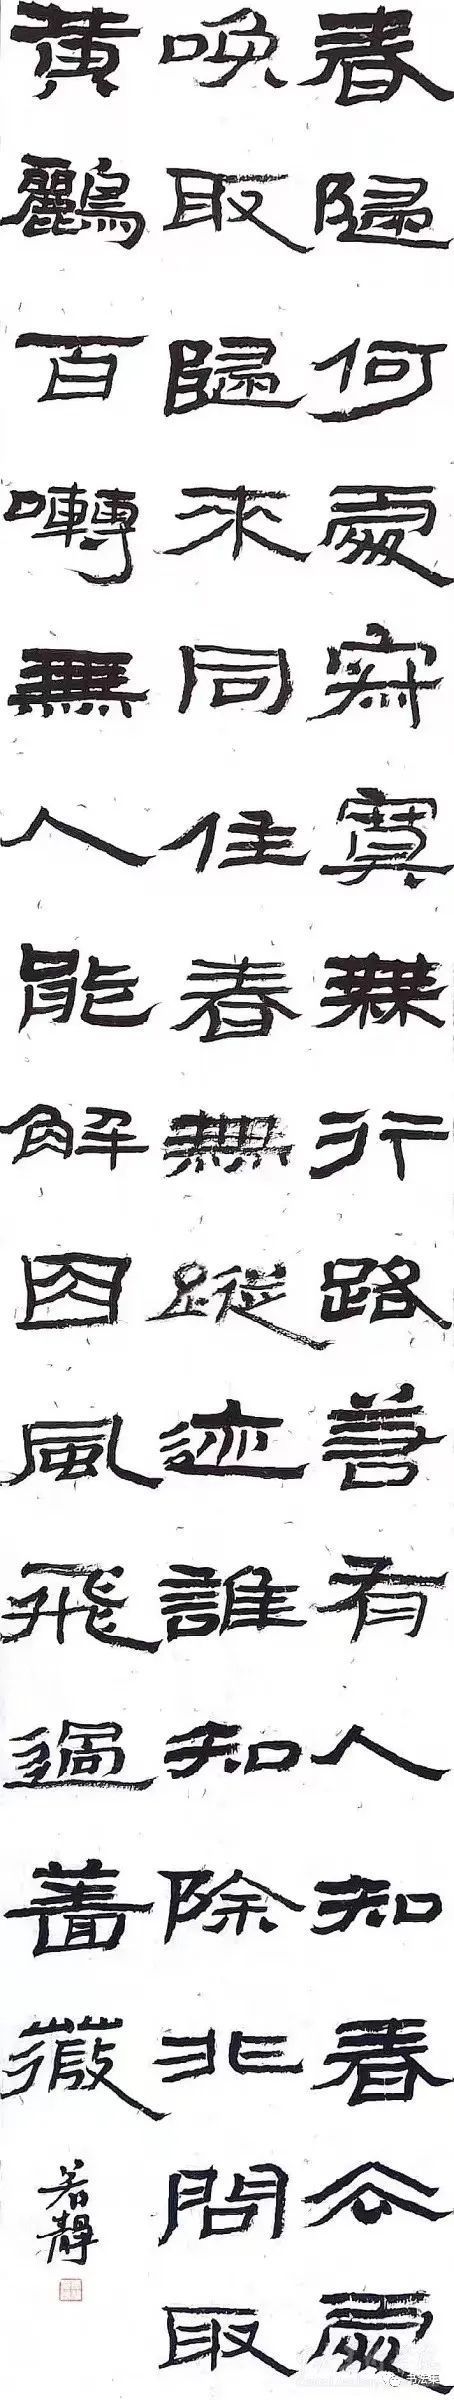 春歸何處寂寞無行路若有人知春去處
喚取歸來同住春無蹤迹誰知除非問取
黄鸝百囀無人能解因風飛過薔薇
若靜
书法集